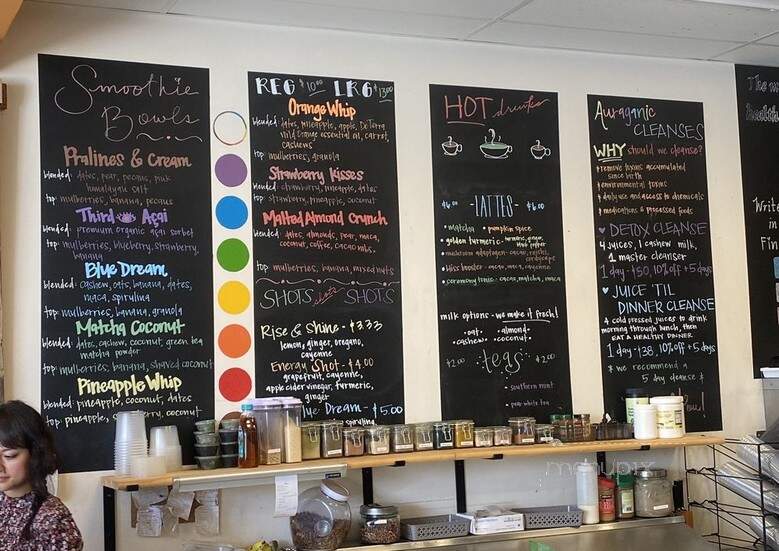 Smoothie
Bowls
Pralines & Cream
blended: dates, pear, pecans, pink
himalayan salt
top: mulberries, banana, pecans
Third Açai
blended: premium organic açai sorbet
top: mulberries, blueberry, strawberry,
banana
Blue Dream
blended: cashew, oats, banana, dates,
maca, spirulina
top: mulberries, banana, granola
Matcha Coconut
blended: dates, cashew, coconut, green tea
matcha powder
top: mulberries, banana, shaved coconut
Pineapple Whip
blended: pineapple, coconut, dates
top: pineapple, coconut
REG $10.00 LRG $13.00
Orange Whip
blended: dates, pineapple, apple, DoTerra
wild orange essential oil, carrot,
cashews
top: mulberries, granola
Strawberry Kisses
blended: strawberry, pineapple, dates
top: strawberry, pineapple, coconut
Malted Almond Crunch
blended: dates, almonds, pear, maca,
coconut, coffee, cacao nibs.
top: mulberries, banana, mixed nuts
SHOTS shots SHOTS
Rise & Shine - $3.33
lemon, ginger, oregano,
cayenne
Energy Shot - $4.00
grapefruit, cayenne,
apple cider vinegar, turmeric,
ginger
Blue Dream - $5.00
spirulina
HOT drinks
$6.00 -LATTES- $6.00
• matcha • pumpkin spice
• golden turmeric - turmeric, ginger,
black pepper
• mushroom adaptogen - cacao, reishi,
cordyceps
• bliss booster - cacao, maca, cayenne
• ceremony tonic - cacao, matcha, maca
milk options - we make it fresh!
• oat • • almond •
• cashew • • coconut •
$2.00 teas $2.00
- southern mint
- pear white tea
Auraganic
CLEANSES
WHY should we cleanse?
* remove toxins accumulated
since birth
* environmental toxins
* daily use and access to chemicals
* medications & processed foods
♥ DETOX CLEANSE
4 juices, 1 cashew milk,
1 master cleanser
1 day - $50, 10% off + 5 days
♥ JUICE 'TIL
DINNER CLEANSE
4 cold pressed juices to drink
morning through lunch, then
eat a healthy dinner
1 day - $38, 10% off + 5 days
* we recommend a
5 day cleanse *
The
Write
in
Fin
menupix